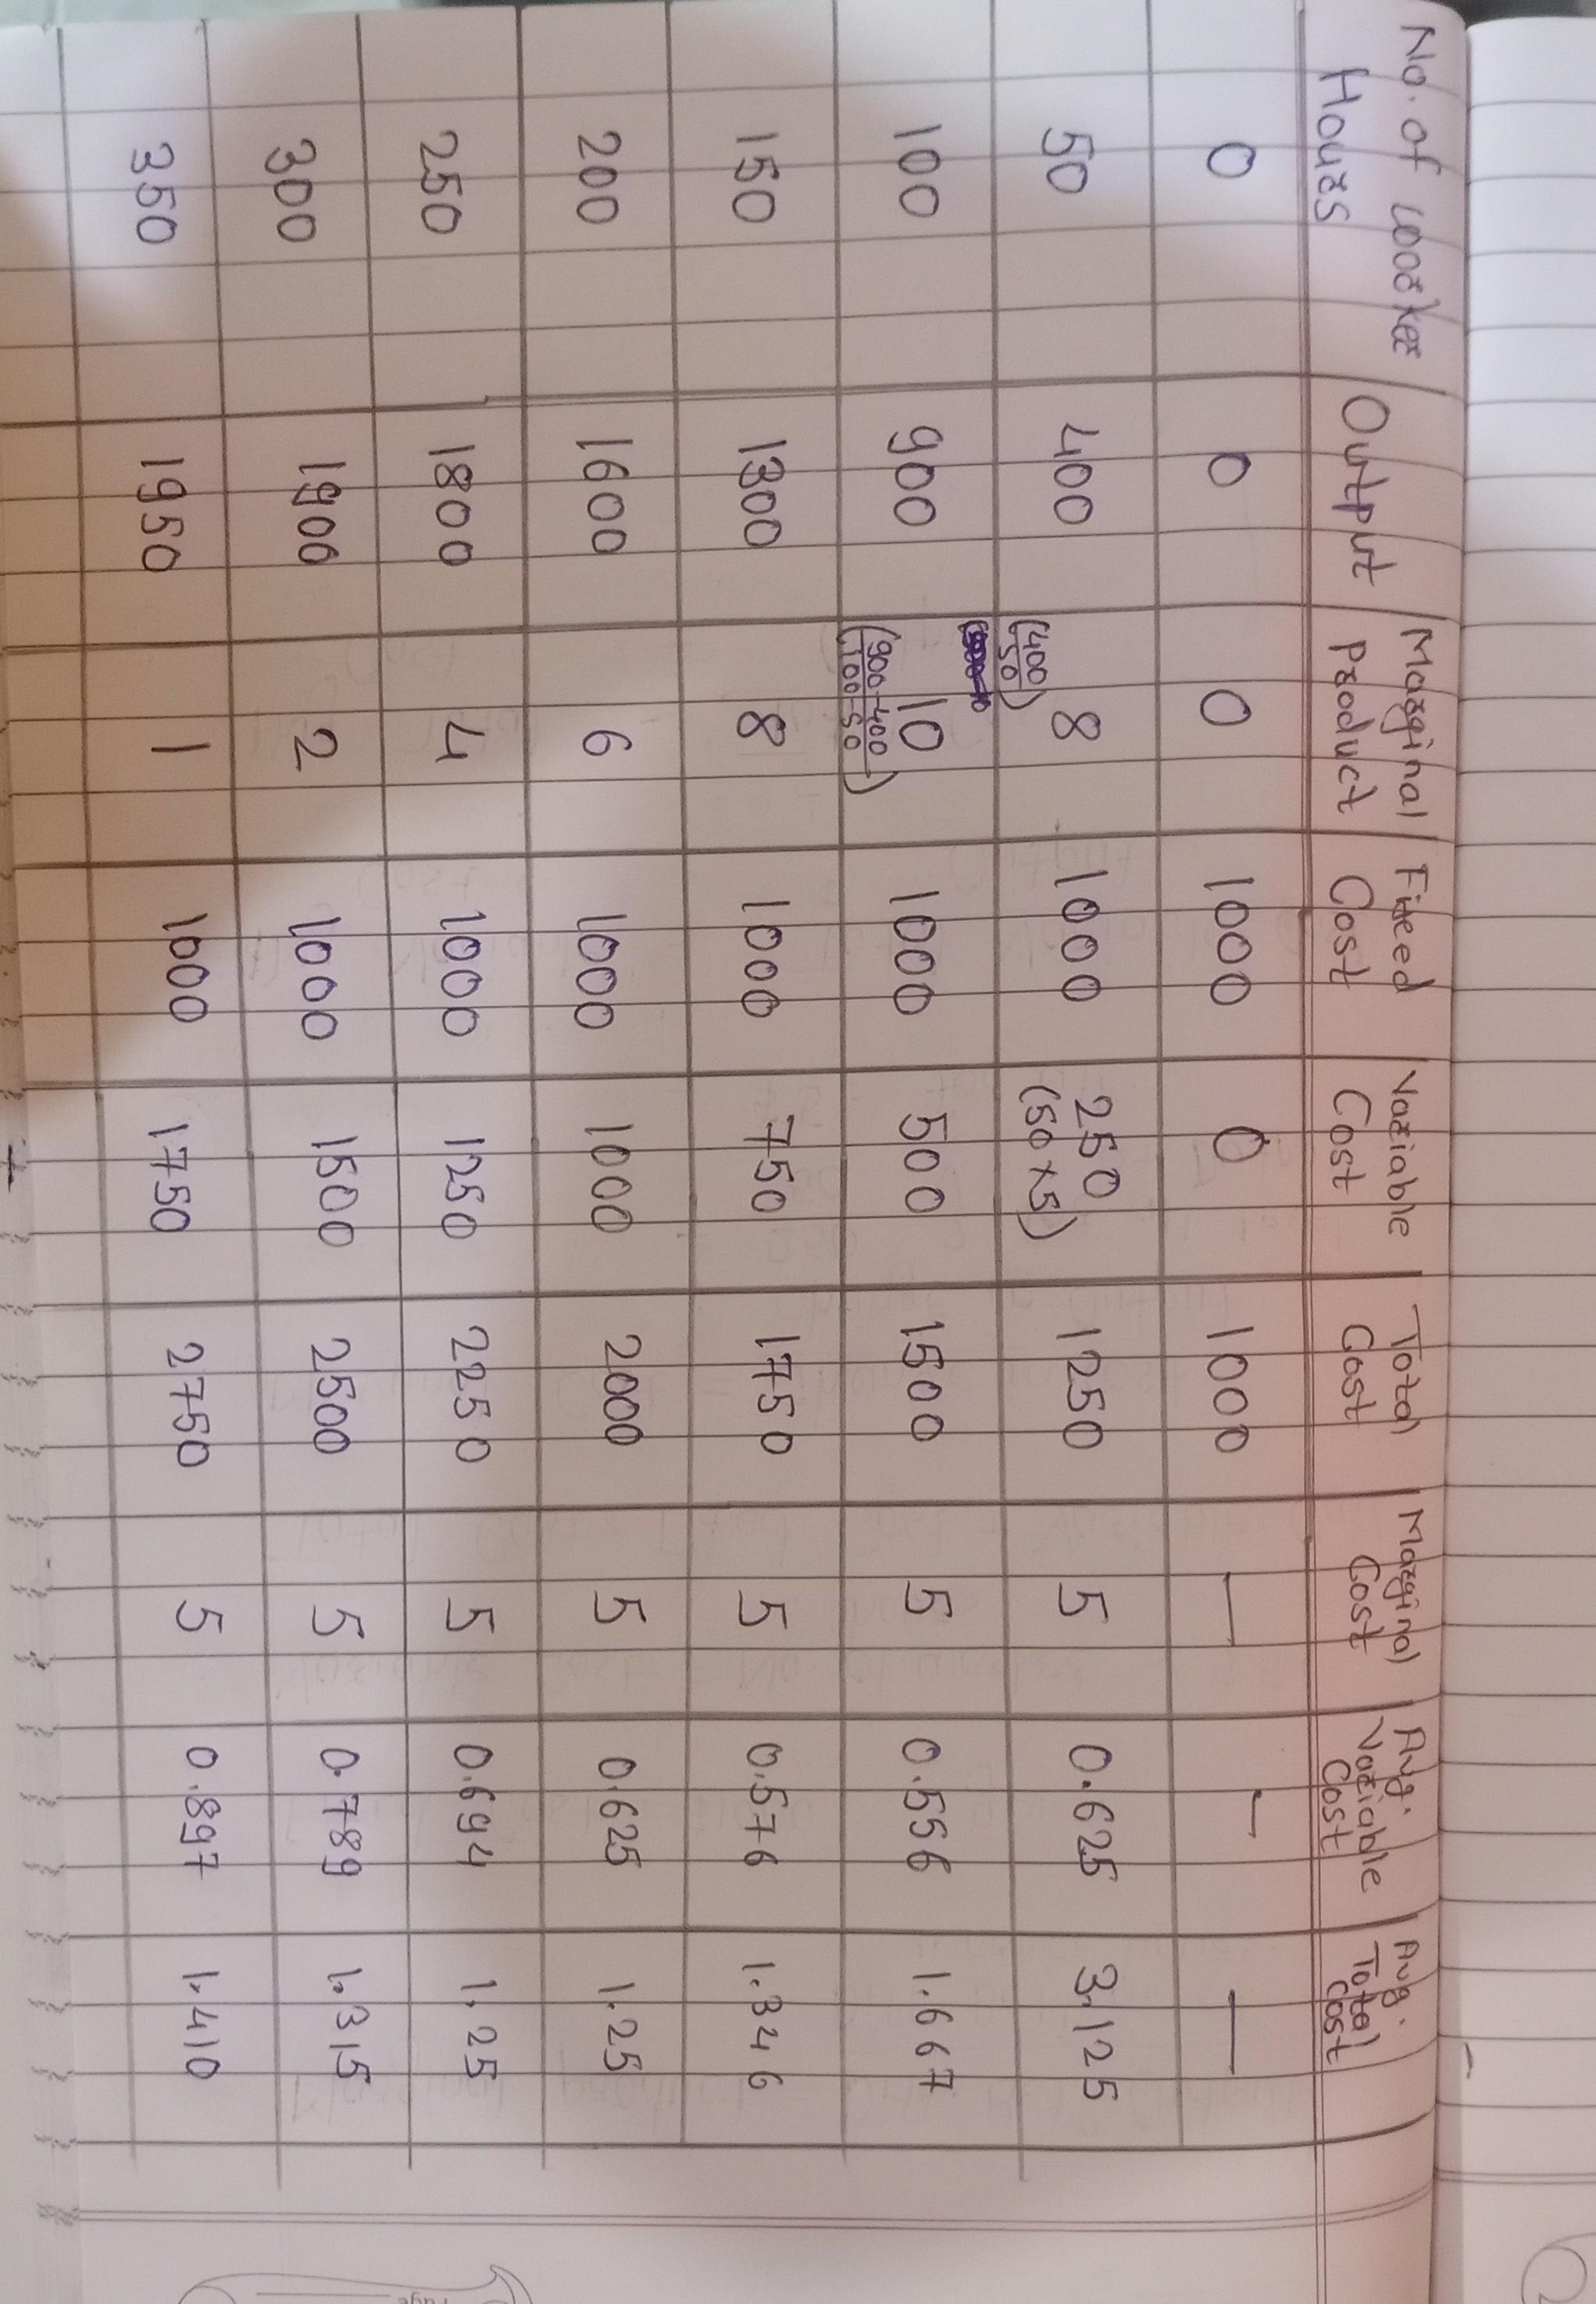 No. of worker Hours | Output | Marginal Product | Fixed Cost | Variable Cost | Total Cost | Marginal Cost | Avg. Variable Cost | Avg. Total Cost
0 | 0 | 0 | 1000 | 0 | 1000 | — | — | —
50 | 400 | (400/50) 8 | 1000 | 250 (50×5) | 1250 | 5 | 0.625 | 3.125
100 | 900 | 10 (900-400/100-50) | 1000 | 500 | 1500 | 5 | 0.556 | 1.667
150 | 1300 | 8 | 1000 | 750 | 1750 | 5 | 0.576 | 1.346
200 | 1600 | 6 | 1000 | 1000 | 2000 | 5 | 0.625 | 1.25
250 | 1800 | 4 | 1000 | 1250 | 2250 | 5 | 0.694 | 1.25
300 | 1900 | 2 | 1000 | 1500 | 2500 | 5 | 0.789 | 1.315
350 | 1950 | 1 | 1000 | 1750 | 2750 | 5 | 0.897 | 1.410